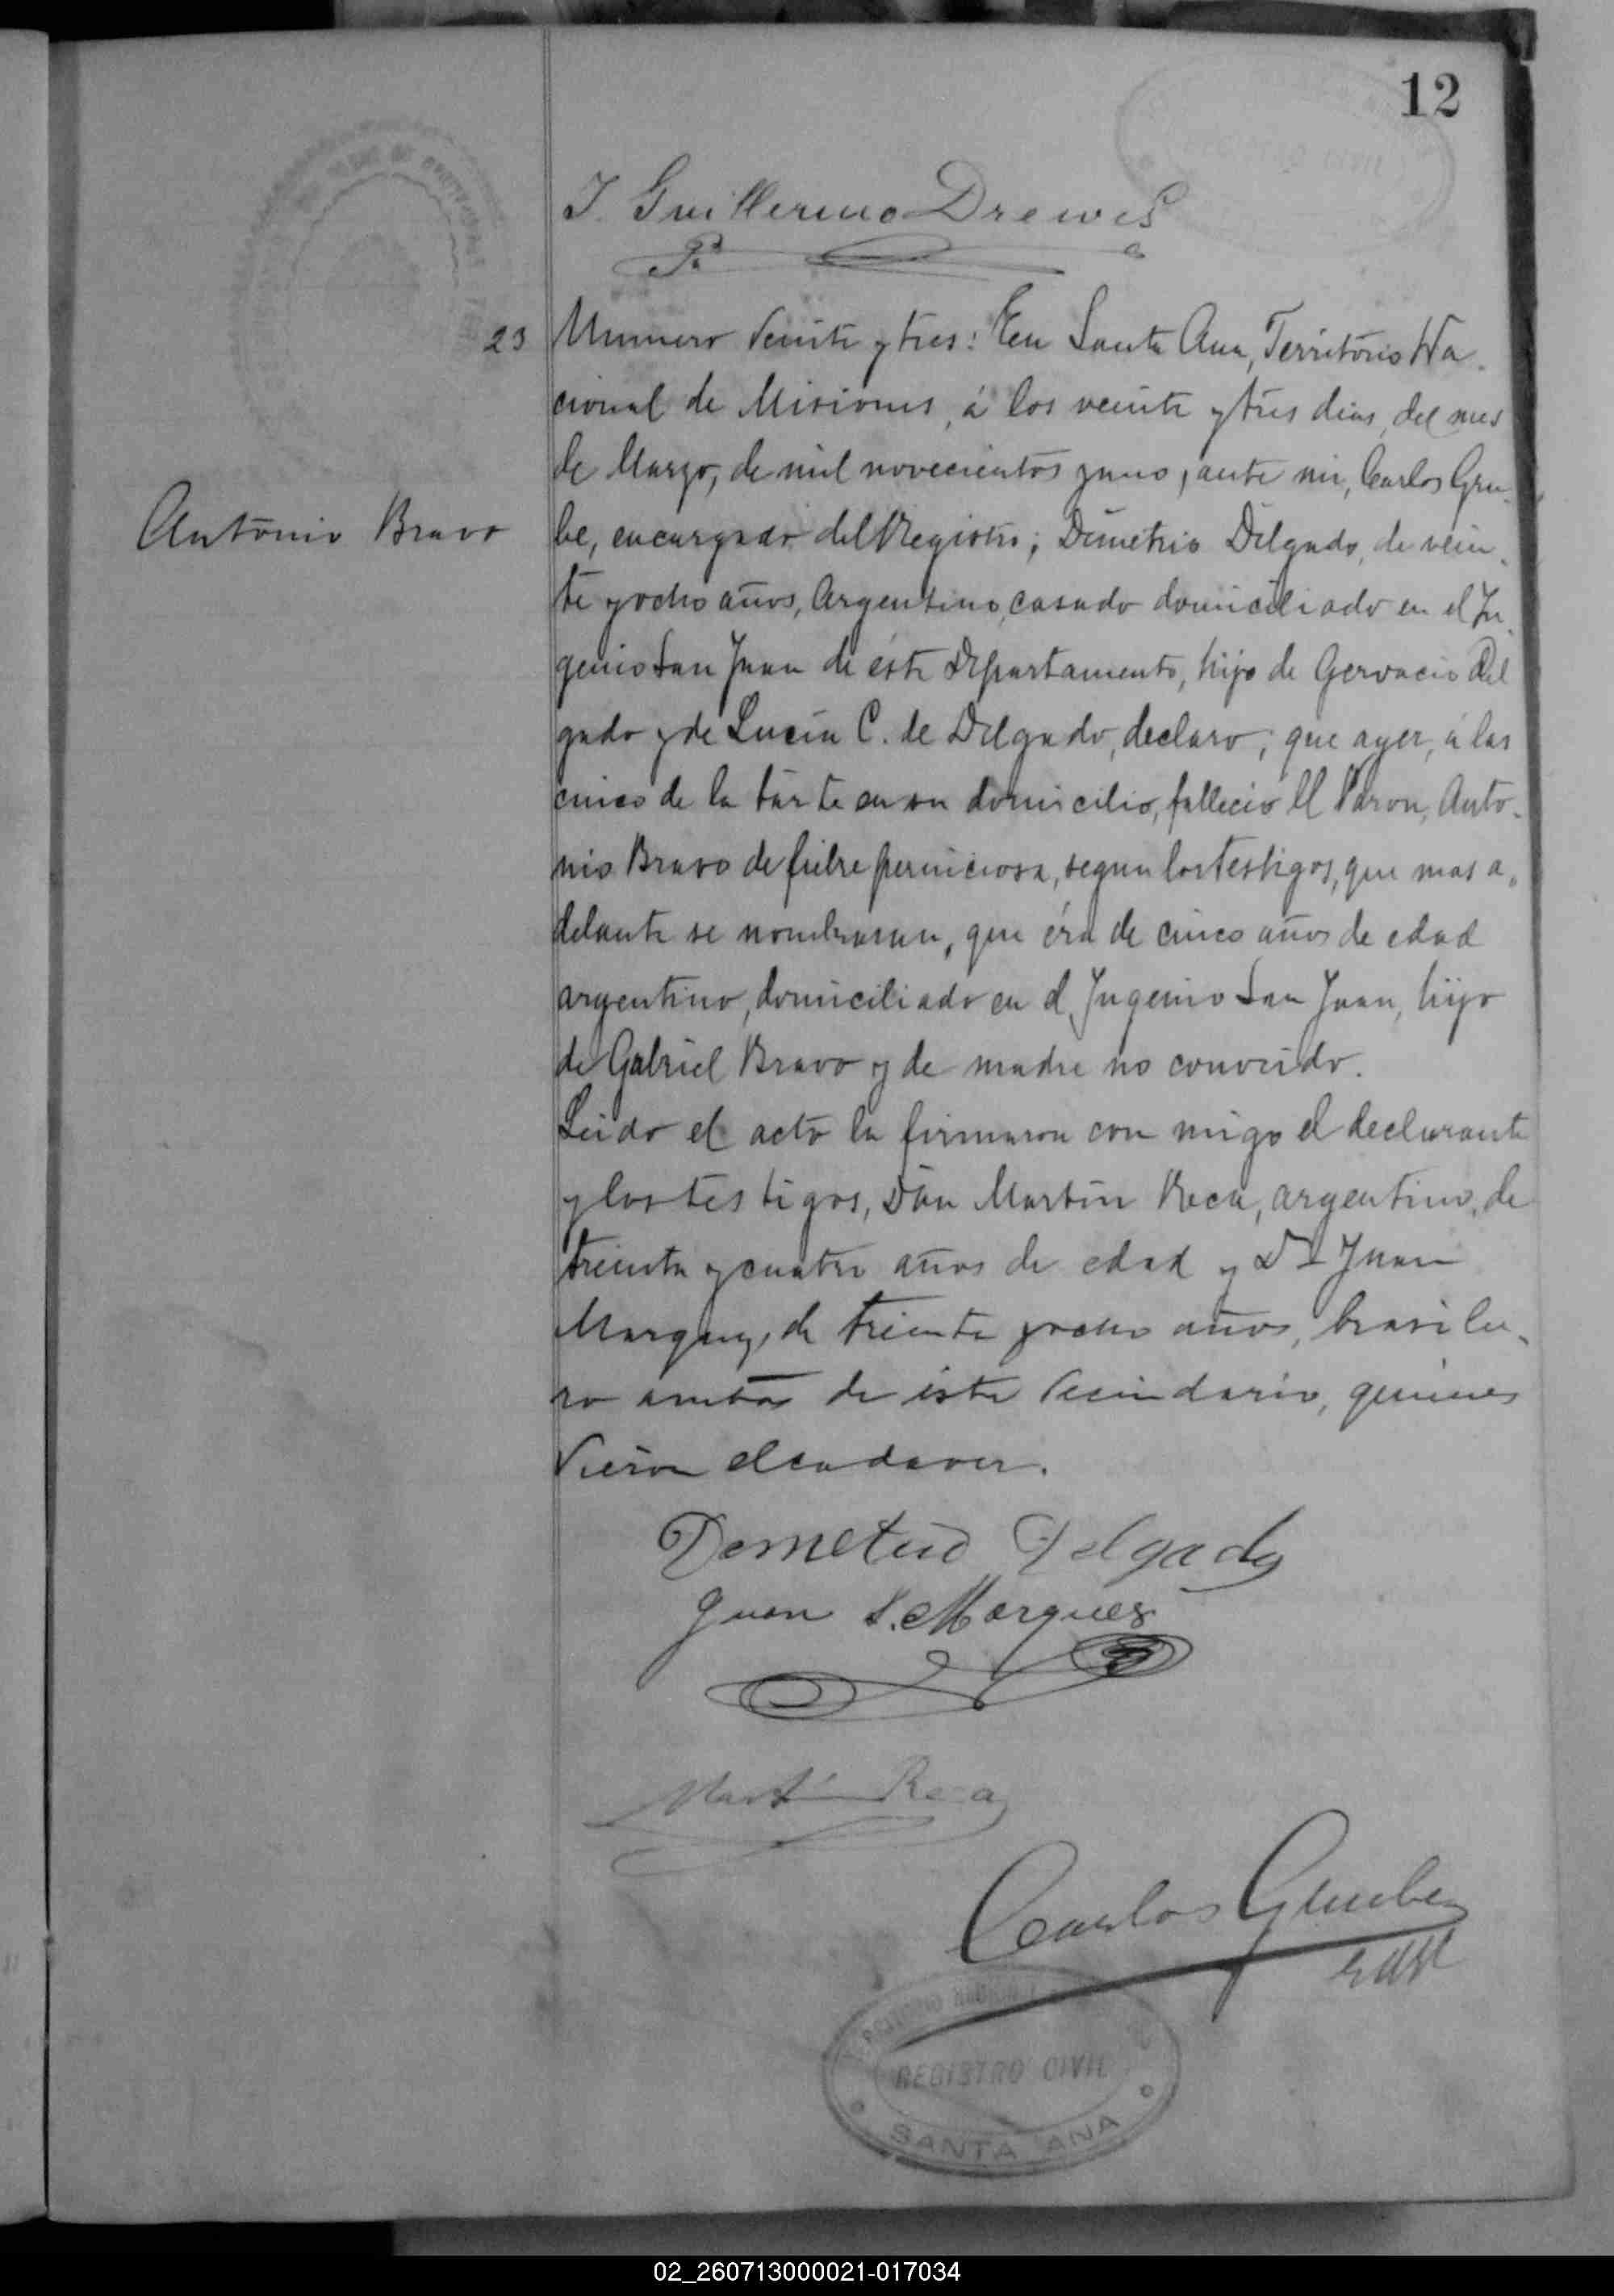 12
J. Guillermo Drewes
23 Numero veinte y tres: En Santa Ana, Territorio Na-
cional de Misiones, á los veinte y tres dias, del mes
de Marzo, de mil novecientos y uno, ante mi, Carlos Gru-
Antonio Bravo
be, encargado del Registro; Demetrio Delgado, de vein-
te y ocho años, Argentino, casado domiciliado en el In-
genio San Juan de éste Departamento, hijo de Gervacio Del
gado y de Lucía C. de Delgado, declaro; que ayer, á las
cinco de la tarte en su domicilio, fallecio El Varon, Anto-
nio Bravo de fiebre perniciosa, segun los testigos, que mas a-
delante se nombraran, que éra de cinco años de edad
argentino, domiciliado en el Ingenio San Juan, hijo
de Gabriel Bravo y de madre no conocido.
Leido el acto la firmaron con migo el declarante
y los testigos, Dón Martin Reca, argentino, de
treinta y cuatro años de edad y Dn Juan
Marquez, de treinta y ocho años, brasile-
ro ambos de éste Vecindario, quienes
Vieron el cadaver.
Demetrio Delgado
Juan S. Marquez
Martín Reca
Carlos Grube
REGISTRO CIVIL
SANTA ANA
02_260713000021-017034